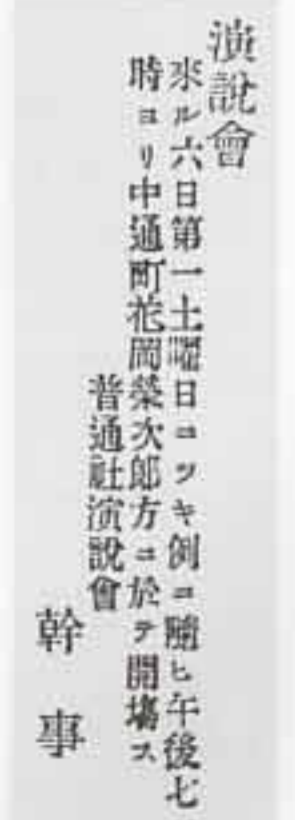 演說會
來ル六日第一土曜日ニツキ例ニ隨ヒ午後七
時ヨリ中通町花岡榮次郎方ニ於テ開塲ス
普通社演說會
幹事